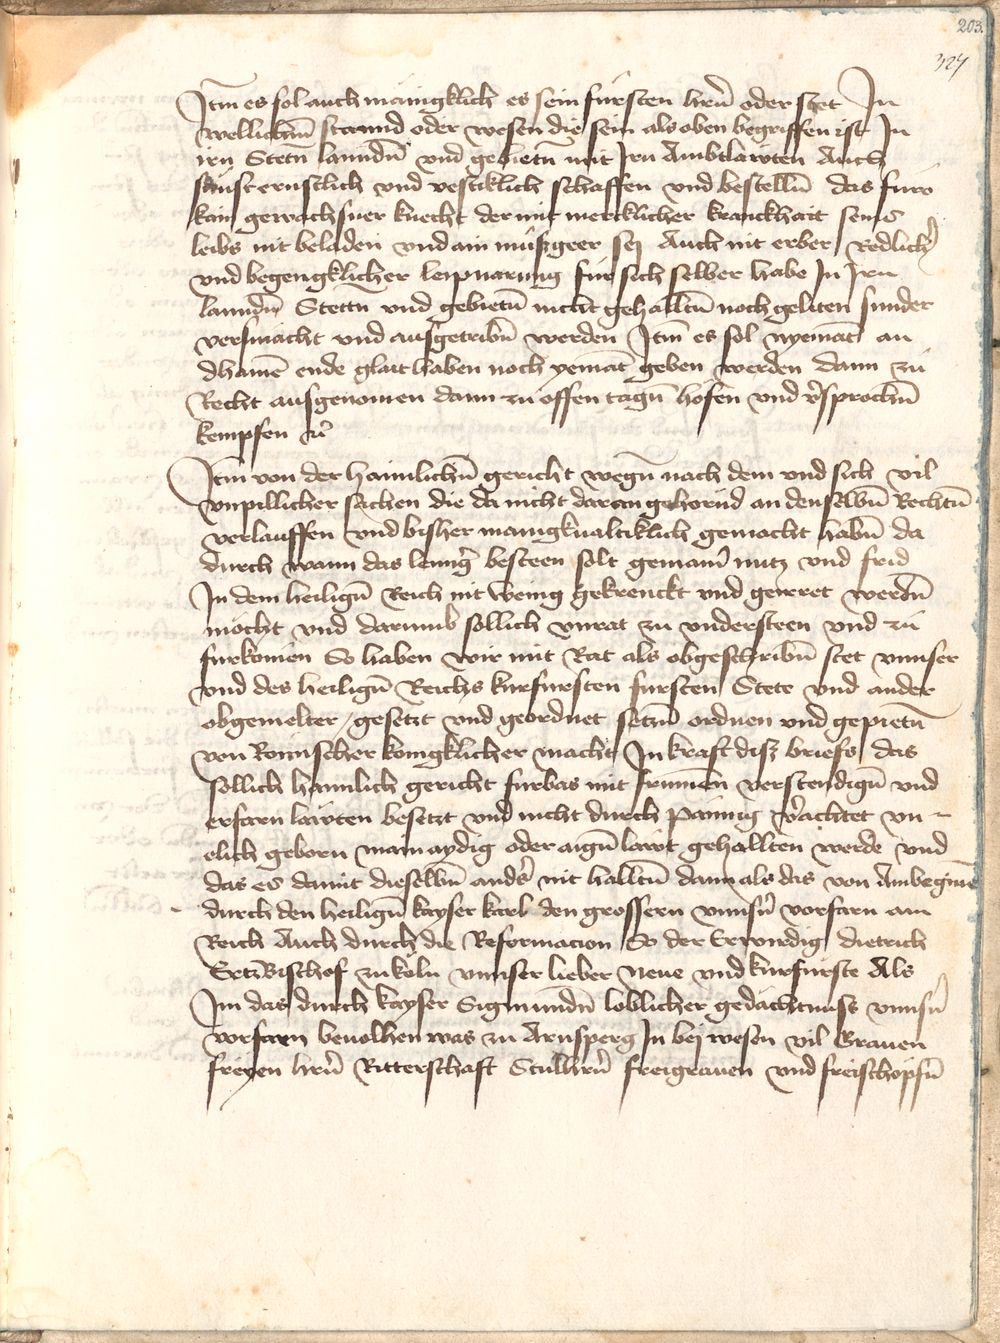 203.
327
Itm es sol auch mainigklich es sein fürsten hern̄ oder stet In
wellichm̄ stannd oder wesen die sein als oben begriffen ist In
irn Stetn̄ lanndn̄ vnd gebietn̄ mit Irn Ambtläwten Auch
sünst ernstlich vnd vesticklich schaffen vnd bestelln̄ das füro
kain gewachsner knecht der mit mercklicher kranckhait seins
leibs nit beladen vnd ain müßgeer sej Auch nit erber Redlich̄
vnd begengklicher leipnarung für sich selber habe In Irn
lanndn̄ Stettn vnd gebietn̄ nicht gehalltn̄ noch geliten sunder
versmächt vnd ausgetribn̄ werden Itm̄ es sol nyemāt an
dhainē ende glait haben noch yemāt geben werden dann zů
Recht ausgenomen dann zu offen tagn̄ höfen vnd v̄sprochn̄
kempfen ꝛc̄
Itm von der haimlichn̄ gericht wegn̄ nach dem vnd sich vil
vnpillicher sachen die da nicht daran gehörnd an denselbn̄ Rechtn̄
verlauffen vnd bisher manigkualticklich gemacht habn̄ da
durch wann das lennḡ besteen solt gemain̄ nutz vnd frid
In dem heilign̄ Reich nit wenig gekrenckt vnd geirret werdn̄
möcht vnd darumb söllich vnrat zu vndersteen vnd zů
fürkomen So haben wir mit Rat als obgeschribn̄ stet vnnser
vnd des heilign̄ Reichs kurfursten fursten Stete vnd ander
obgemelter gesetzt vnd geordnet setzn̄ ordnen vnd gepietn̄
von Romischer konigklicher macht In kraft disz briefs das
söllich haimlich gericht furbas mit frūmen verstendign̄ vnd
erfarn läwten besetzt vnd nicht durch pännig v̄achtet vn-
elich geborn mainaydig oder aign̄ läwt gehallten werde vnd
das es damit dieselbn̄ and̄s nit halltn̄ dann als das von Anbeginne
durch den heilign̄ kayser karl den grossern vnnsn̄ vorfarn am
Reich Auch durch die Reformacion So der Erwirdig dietrich
Ertzbischof zu köln vnnser lieber Neue vnd kurfürste Als
Im das durch kayser Sigmundn̄ loblicher gedächtnuss vnnsn̄
vorfarn beuolhen was zu Arnsperg In bej wesen vil Grauen
freyen hern̄ Ritterschaft Stulhern̄ freigrauen vnd freischöpfn̄